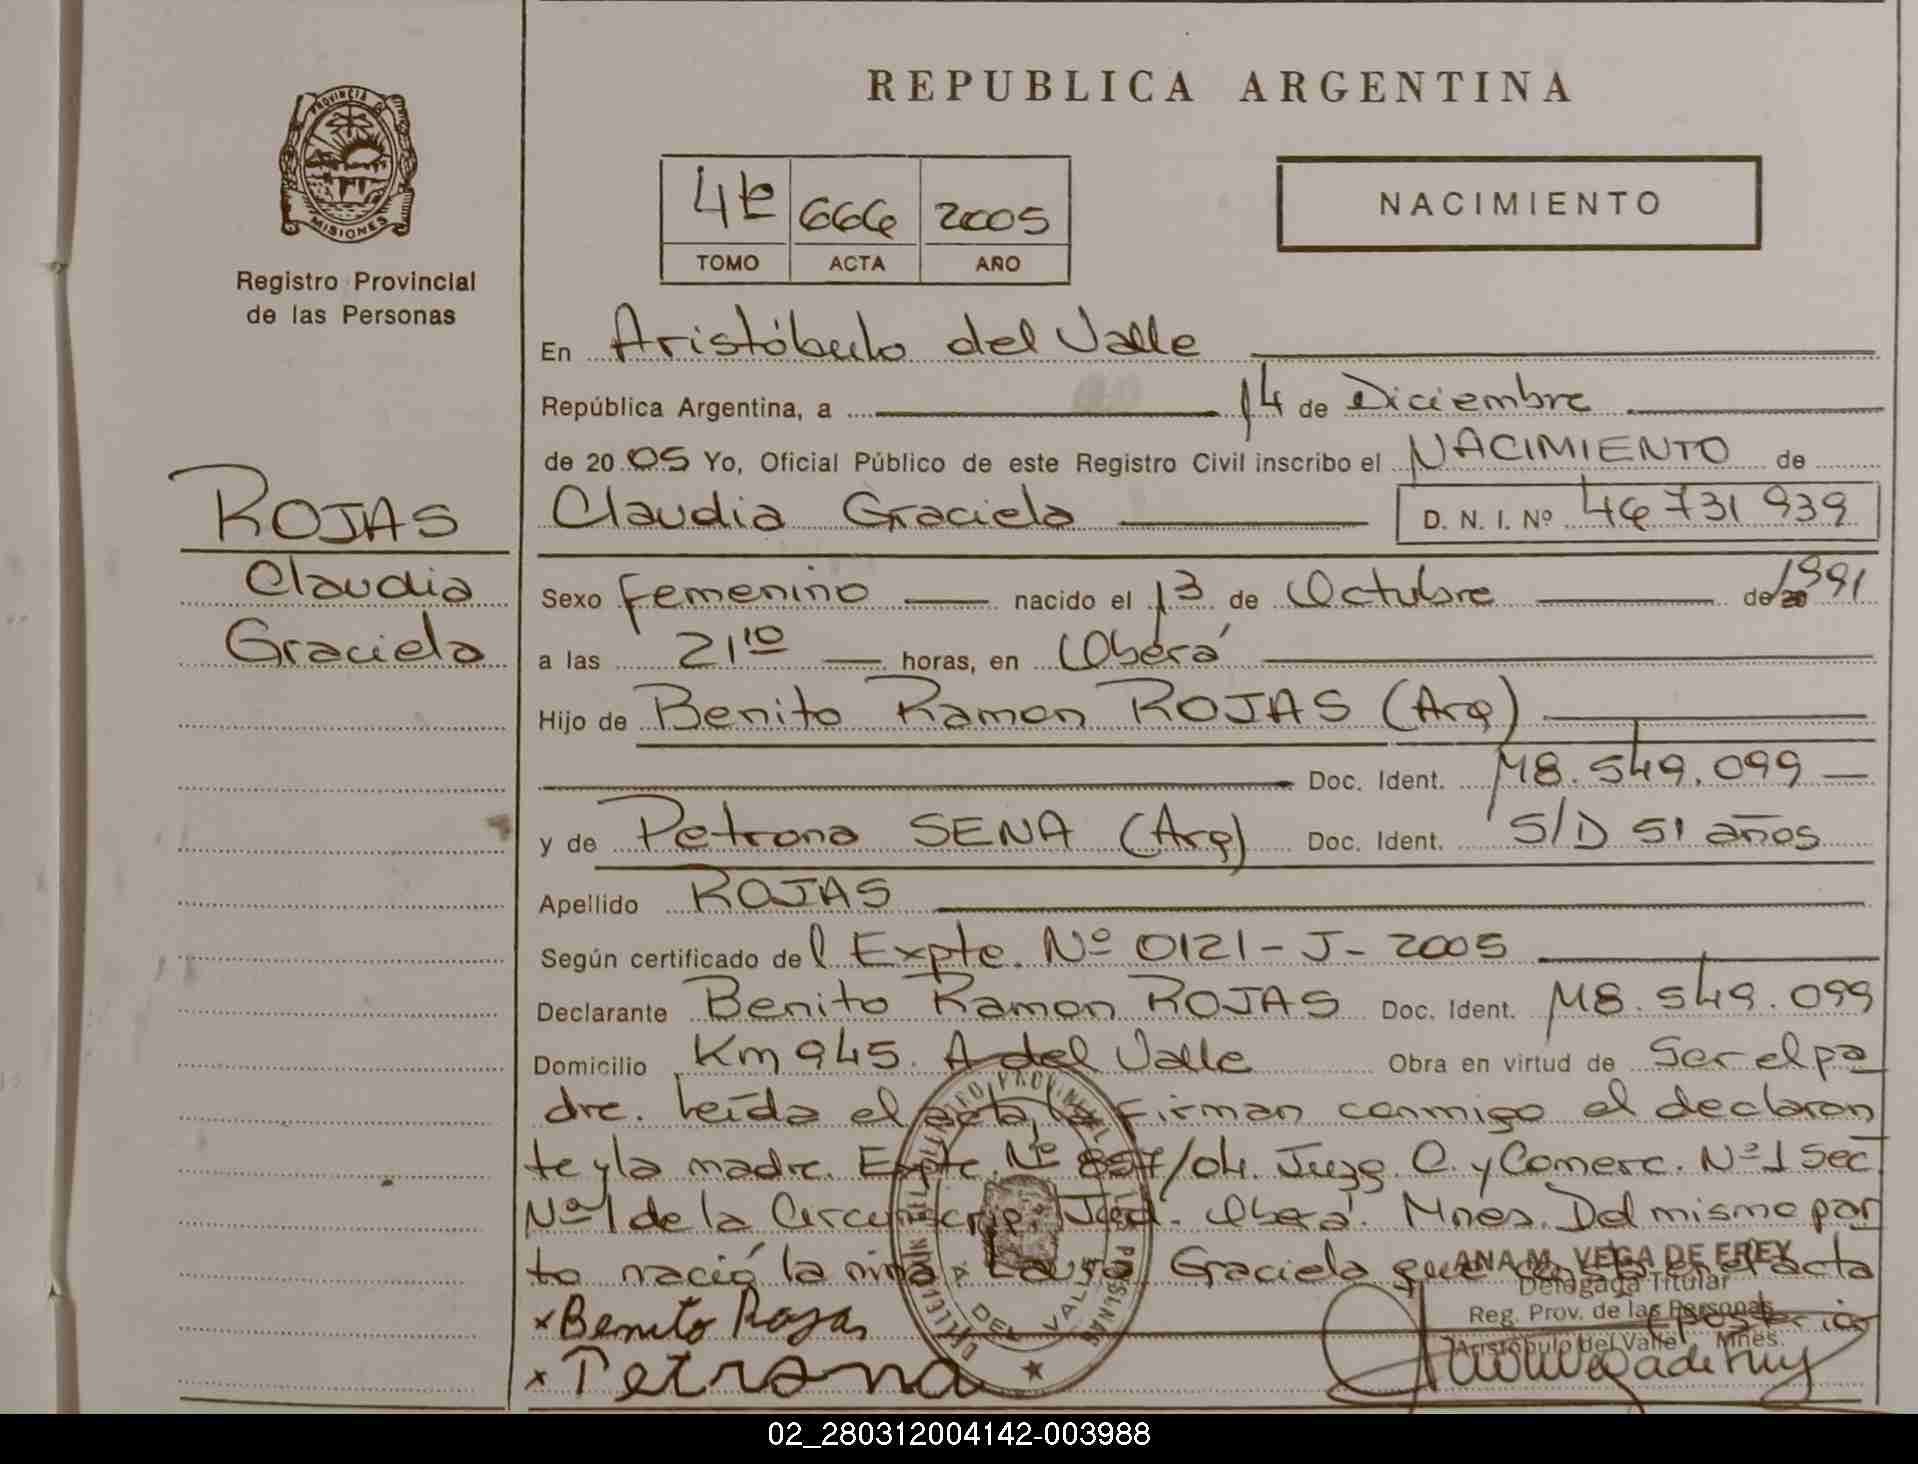 REPUBLICA ARGENTINA
PROVINCIA DE
MISIONES
Registro Provincial
de las Personas
4º 666 2005
TOMO ACTA AÑO
NACIMIENTO
En Aristóbulo del Valle
República Argentina, a 14 de Diciembre
de 2005 Yo, Oficial Público de este Registro Civil inscribo el NACIMIENTO de
Claudia Graciela D. N. I. Nº 46 731 939
ROJAS
Claudia
Graciela
Sexo Femenino nacido el 13 de Octubre de 1991
a las 21 10 horas, en Oberá
Hijo de Benito Ramon ROJAS (Arg)
Doc. Ident. M8.549.099
y de Petrona SENA (Arg) Doc. Ident. S/D 51 años
Apellido ROJAS
Según certificado del Expte. Nº 0121-J-2005
Declarante Benito Ramon ROJAS Doc. Ident. M8.549.099
Domicilio Km 945. A del Valle Obra en virtud de Ser el pa
dre. Leída el acta, la firman conmigo el declaran
te y la madre. Expte. Nº 857/04. Juzg. C. y Comerc. Nº 1 Sec.
Nº 1 de la Circunscrip. Jud. Oberá. Mnes. Del mismo par
to nació la niña Laura Graciela que en el acta
posterior
ANA M. VEGA DE FREY
Delegada Titular
Reg. Prov. de las Personas
Aristóbulo del Valle Mnes.
x Benito Rojas
x Petrona
A. DEL VALLE
02_280312004142-003988